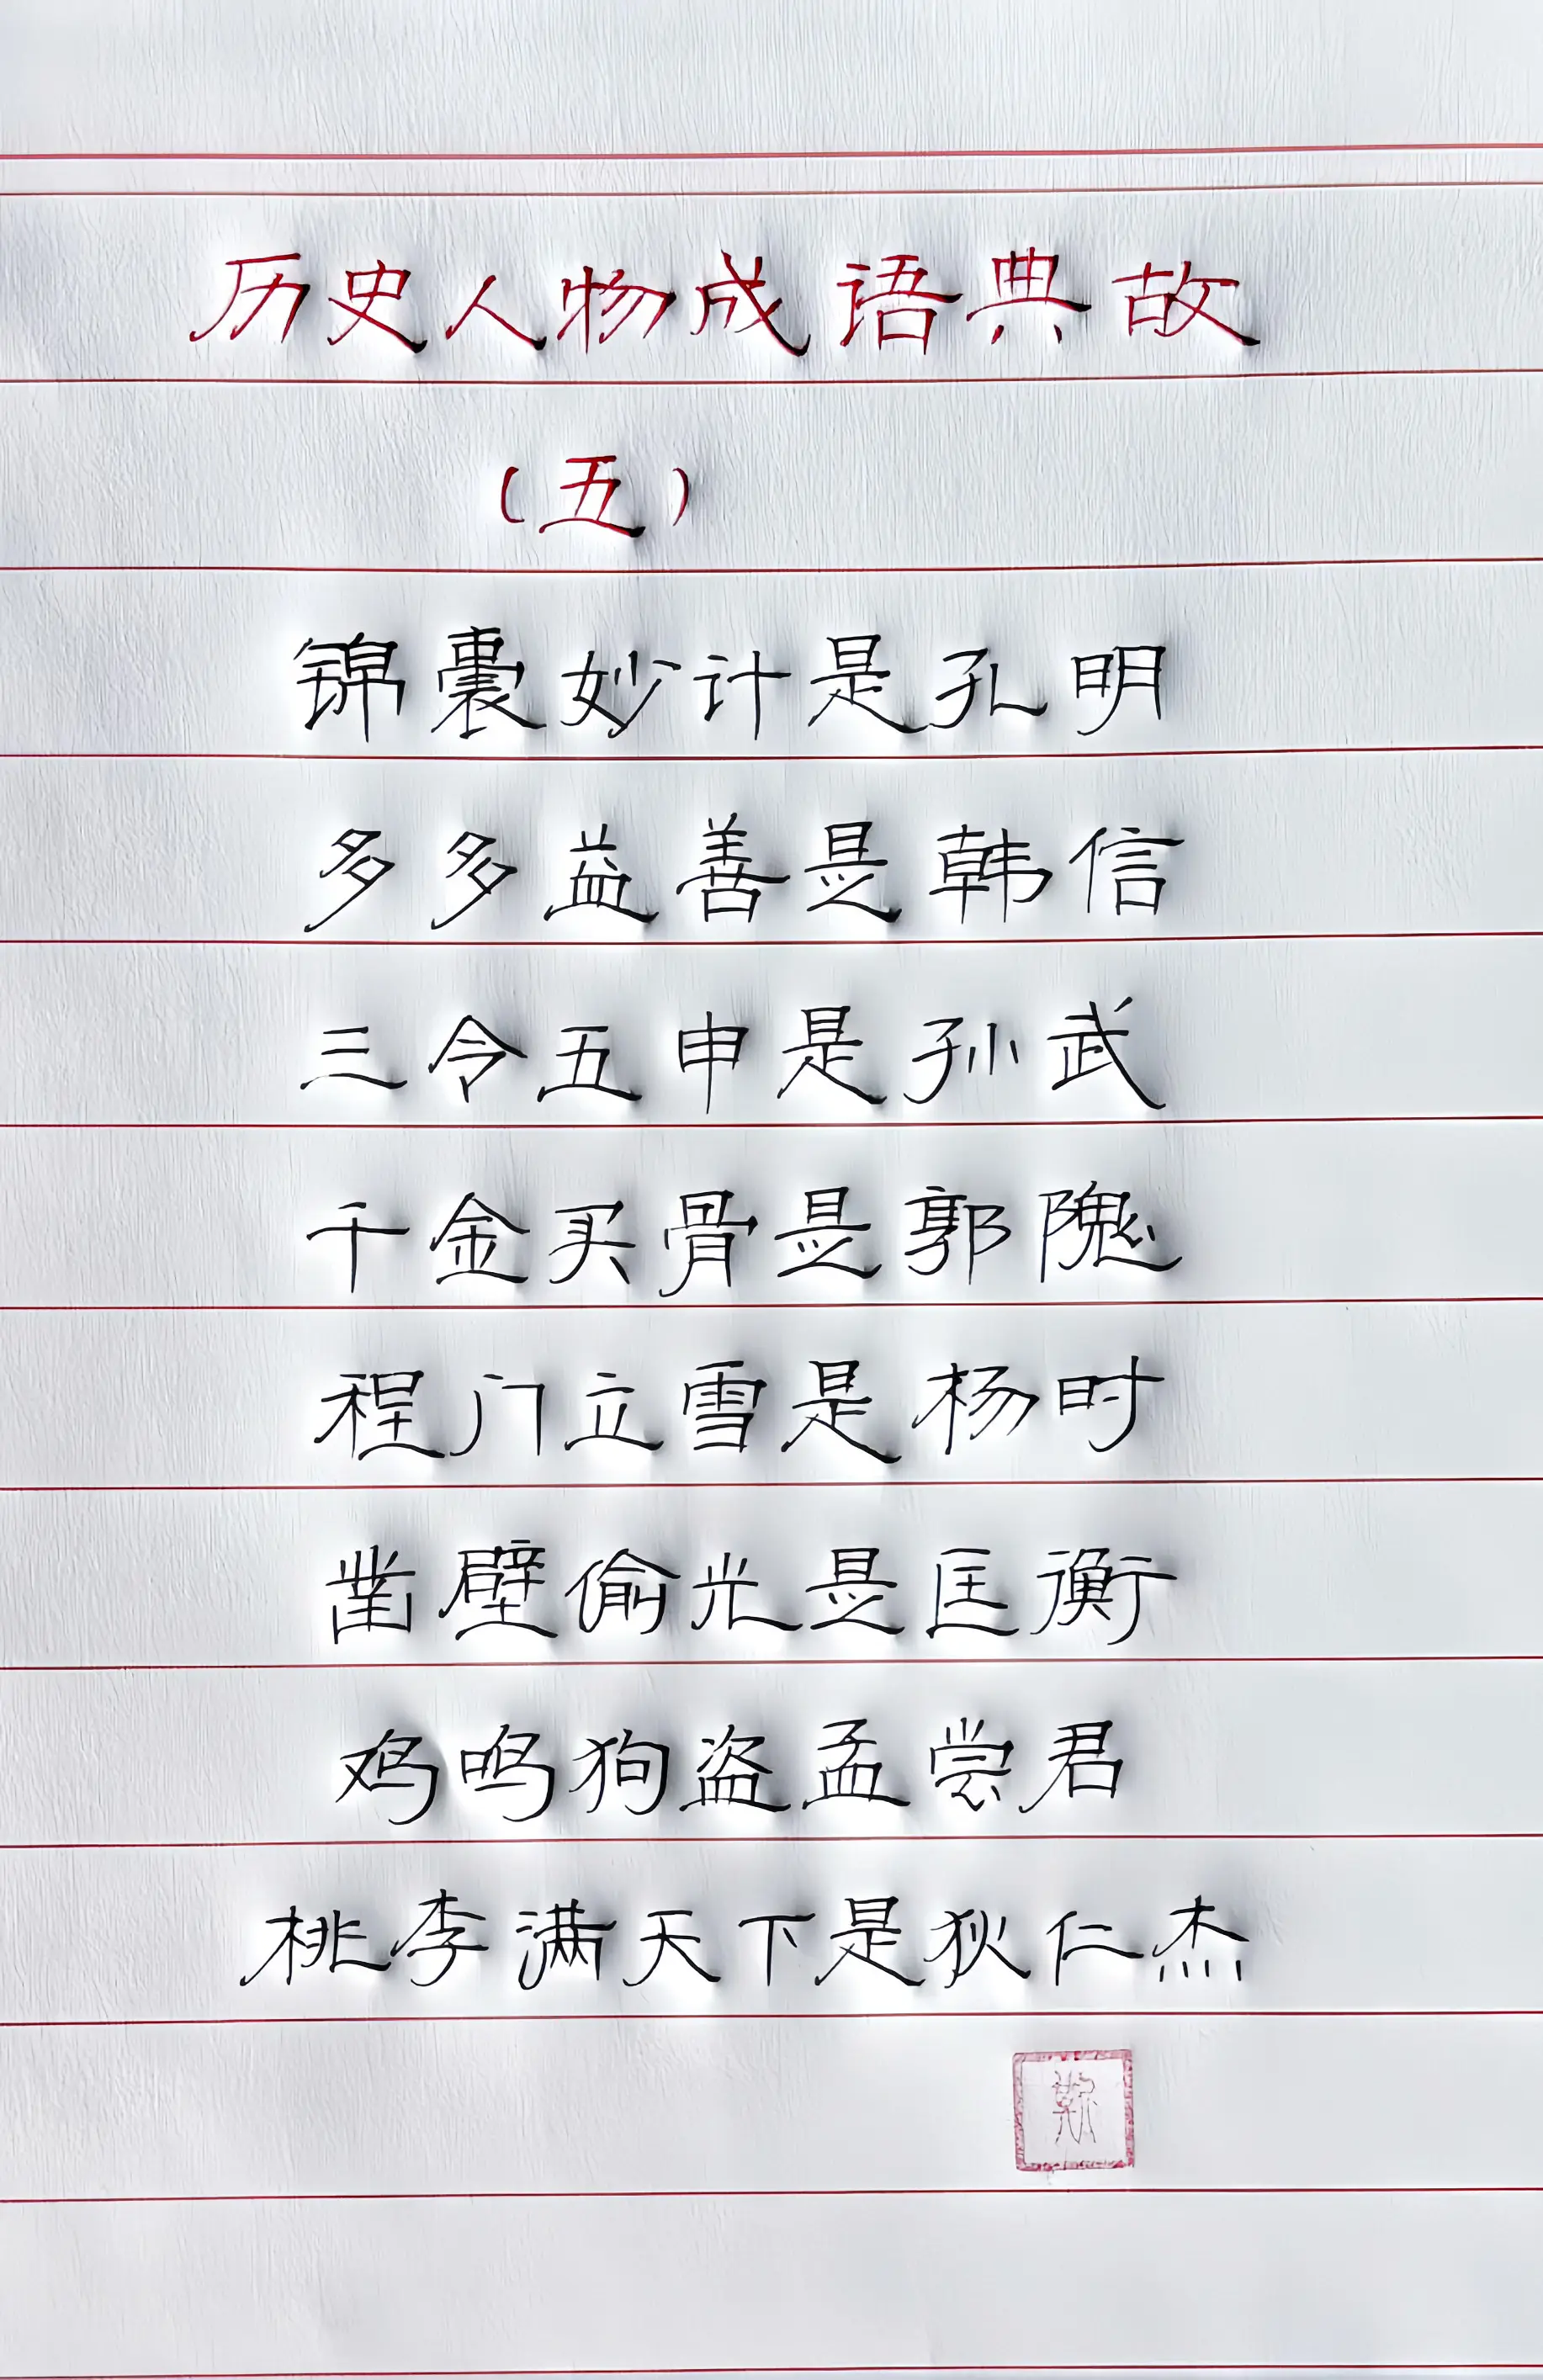 历史人物成语典故
（五）
锦囊妙计是孔明
多多益善是韩信
三令五申是孙武
千金买骨是郭隗
程门立雪是杨时
凿壁偷光是匡衡
鸡鸣狗盗孟尝君
桃李满天下是狄仁杰